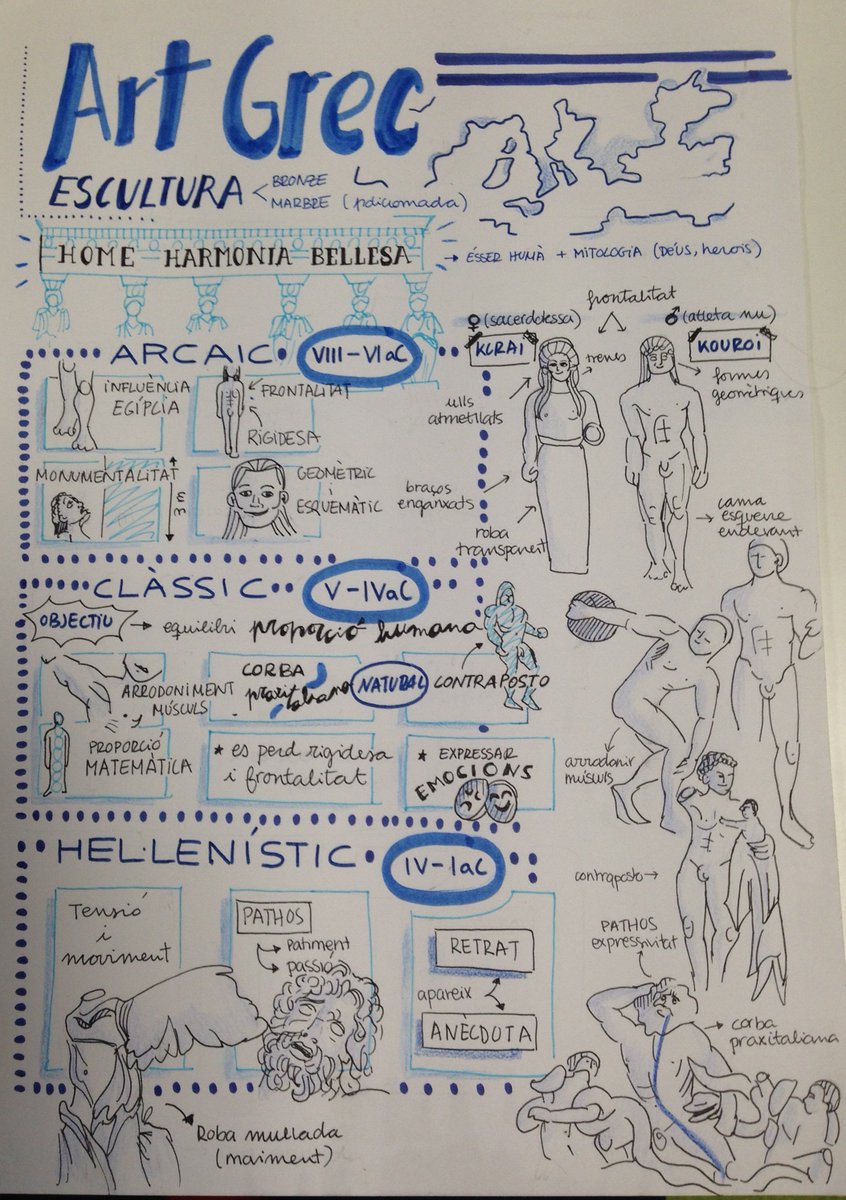 Art Grec
ESCULTURA
BRONZE
MARBRE (policromada)
HOME HARMONIA BELLESA
→ ÉSSER HUMÀ + MITOLOGIA (DÉUS, herois)
ARCAIC
VIII-VIaC
INFLUÈNCIA
EGÍPCIA
FRONTALITAT
RIGIDESA
MONUMENTALITAT
3m
GEOMÈTRIC
i
ESQUEMÀTIC
frontalitat
♀(sacerdotessa)
♂(atleta nu)
KORAI
KOUROI
trenes
formes
geomètriques
ulls
atmetllats
braços
enganxats
roba
transparent
cama
esquerre
endevant
CLÀSSIC
V-IVaC
OBJECTIU → equilibri proporció humana
ARRODONIMENT
MÚSCULS
CORBA
praxitaliana
NATURAL
CONTRAPOSTO
PROPORCIÓ
MATEMÀTICA
* es perd rigidesa
i frontalitat
* EXPRESSAR
EMOCIONS
arrodonir
músculs
contraposto →
HEL·LENÍSTIC
IV-IaC
Tensió
i
moviment
PATHOS
Patiment
passió
RETRAT
apareix
ANÈCDOTA
PATHOS
expressivitat
corba
praxitaliana
Roba mullada
(maiment)